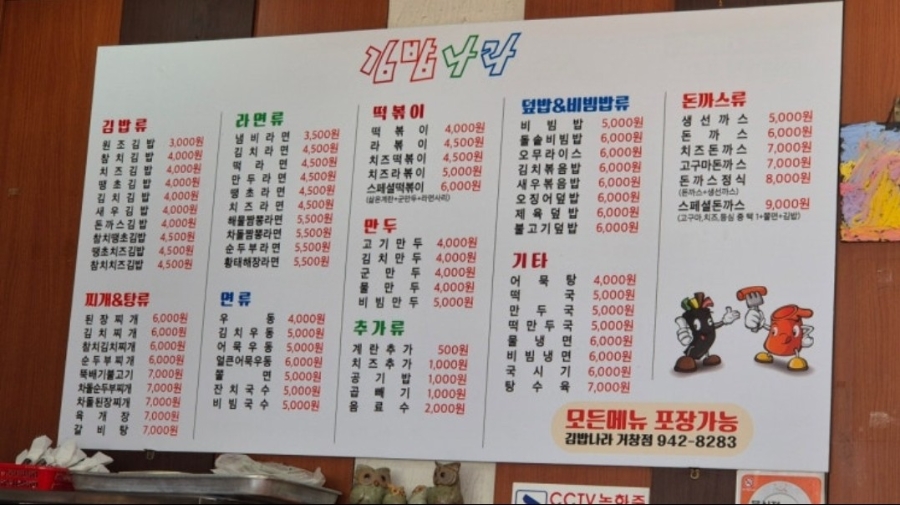 김밥나라
김밥류
원조김밥 3,000원
참치김밥 4,000원
치즈김밥 4,000원
땡초김밥 4,000원
김치김밥 4,000원
새우김밥 4,000원
돈까스김밥 4,000원
참치땡초김밥 4,500원
땡초치즈김밥 4,500원
참치치즈김밥 4,500원
찌개&탕류
된장찌개 6,000원
김치찌개 6,000원
참치김치찌개 6,000원
순두부찌개 6,000원
뚝배기불고기 7,000원
차돌순두부찌개 7,000원
차돌된장찌개 7,000원
육개장 7,000원
갈비탕 7,000원
라면류
냄비라면 3,500원
김치라면 4,500원
떡라면 4,500원
만두라면 4,500원
땡초라면 4,500원
치즈라면 4,500원
해물짬뽕라면 5,500원
차돌짬뽕라면 5,500원
순두부라면 5,500원
황태해장라면 5,500원
면류
우동 4,000원
김치우동 5,000원
어묵우동 5,000원
얼큰어묵우동 6,000원
쫄면 5,000원
잔치국수 5,000원
비빔국수 5,000원
떡볶이
떡볶이 4,000원
라볶이 4,500원
치즈떡볶이 4,500원
치즈라볶이 5,000원
스페셜떡볶이 6,000원
(삶은계란+군만두+라면사리)
만두
고기만두 4,000원
김치만두 4,000원
군만두 4,000원
물만두 4,000원
비빔만두 5,000원
추가류
계란추가 500원
치즈추가 1,000원
공기밥 1,000원
곱빼기 1,000원
음료수 2,000원
덮밥&비빔밥류
비빔밥 5,000원
돌솥비빔밥 6,000원
오무라이스 6,000원
김치볶음밥 6,000원
새우볶음밥 6,000원
오징어덮밥 6,000원
제육덮밥 6,000원
불고기덮밥 6,000원
기타
어묵탕 4,000원
떡국 5,000원
만두국 5,000원
떡만두국 5,000원
물냉면 6,000원
비빔냉면 6,000원
국시기 6,000원
탕수육 7,000원
돈까스류
생선까스 5,000원
돈까스 6,000원
치즈돈까스 7,000원
고구마돈까스 7,000원
돈까스정식 8,000원
(돈까스+생선까스)
스페셜돈까스 9,000원
(고구마,치즈,등심 중 택 1+쫄면+김밥)
모든메뉴 포장가능
김밥나라 거창점 942-8283
CCTV녹화중